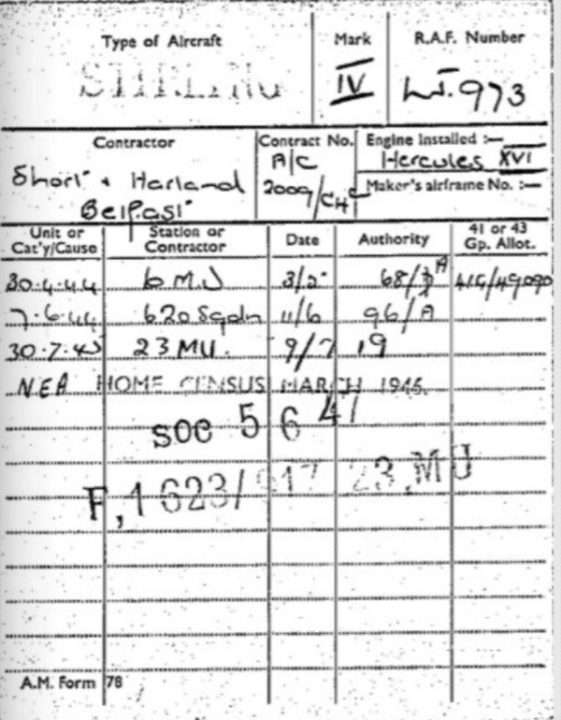 Type of Aircraft Mark R.A.F. Number
STIRLING IV LJ.973
Contractor Contract No. Engine Installed :—
Short & Harland A/C Hercules XVI
Belfast 2009/C4C Maker's airframe No. :—
Unit or Cat'y/Cause Station or Contractor Date Authority 41 or 43 Gp. Allot.
30.4.44 6 MU 3/5 68/ A
7.6.44 620 Sqdn 11/6 96/A
30.7.45 23 MU. 9/7 19
NEA HOME CENSUS MARCH 1946.
SOC 5 6 47
F,1 623/ 23.MU
A.M. Form 78